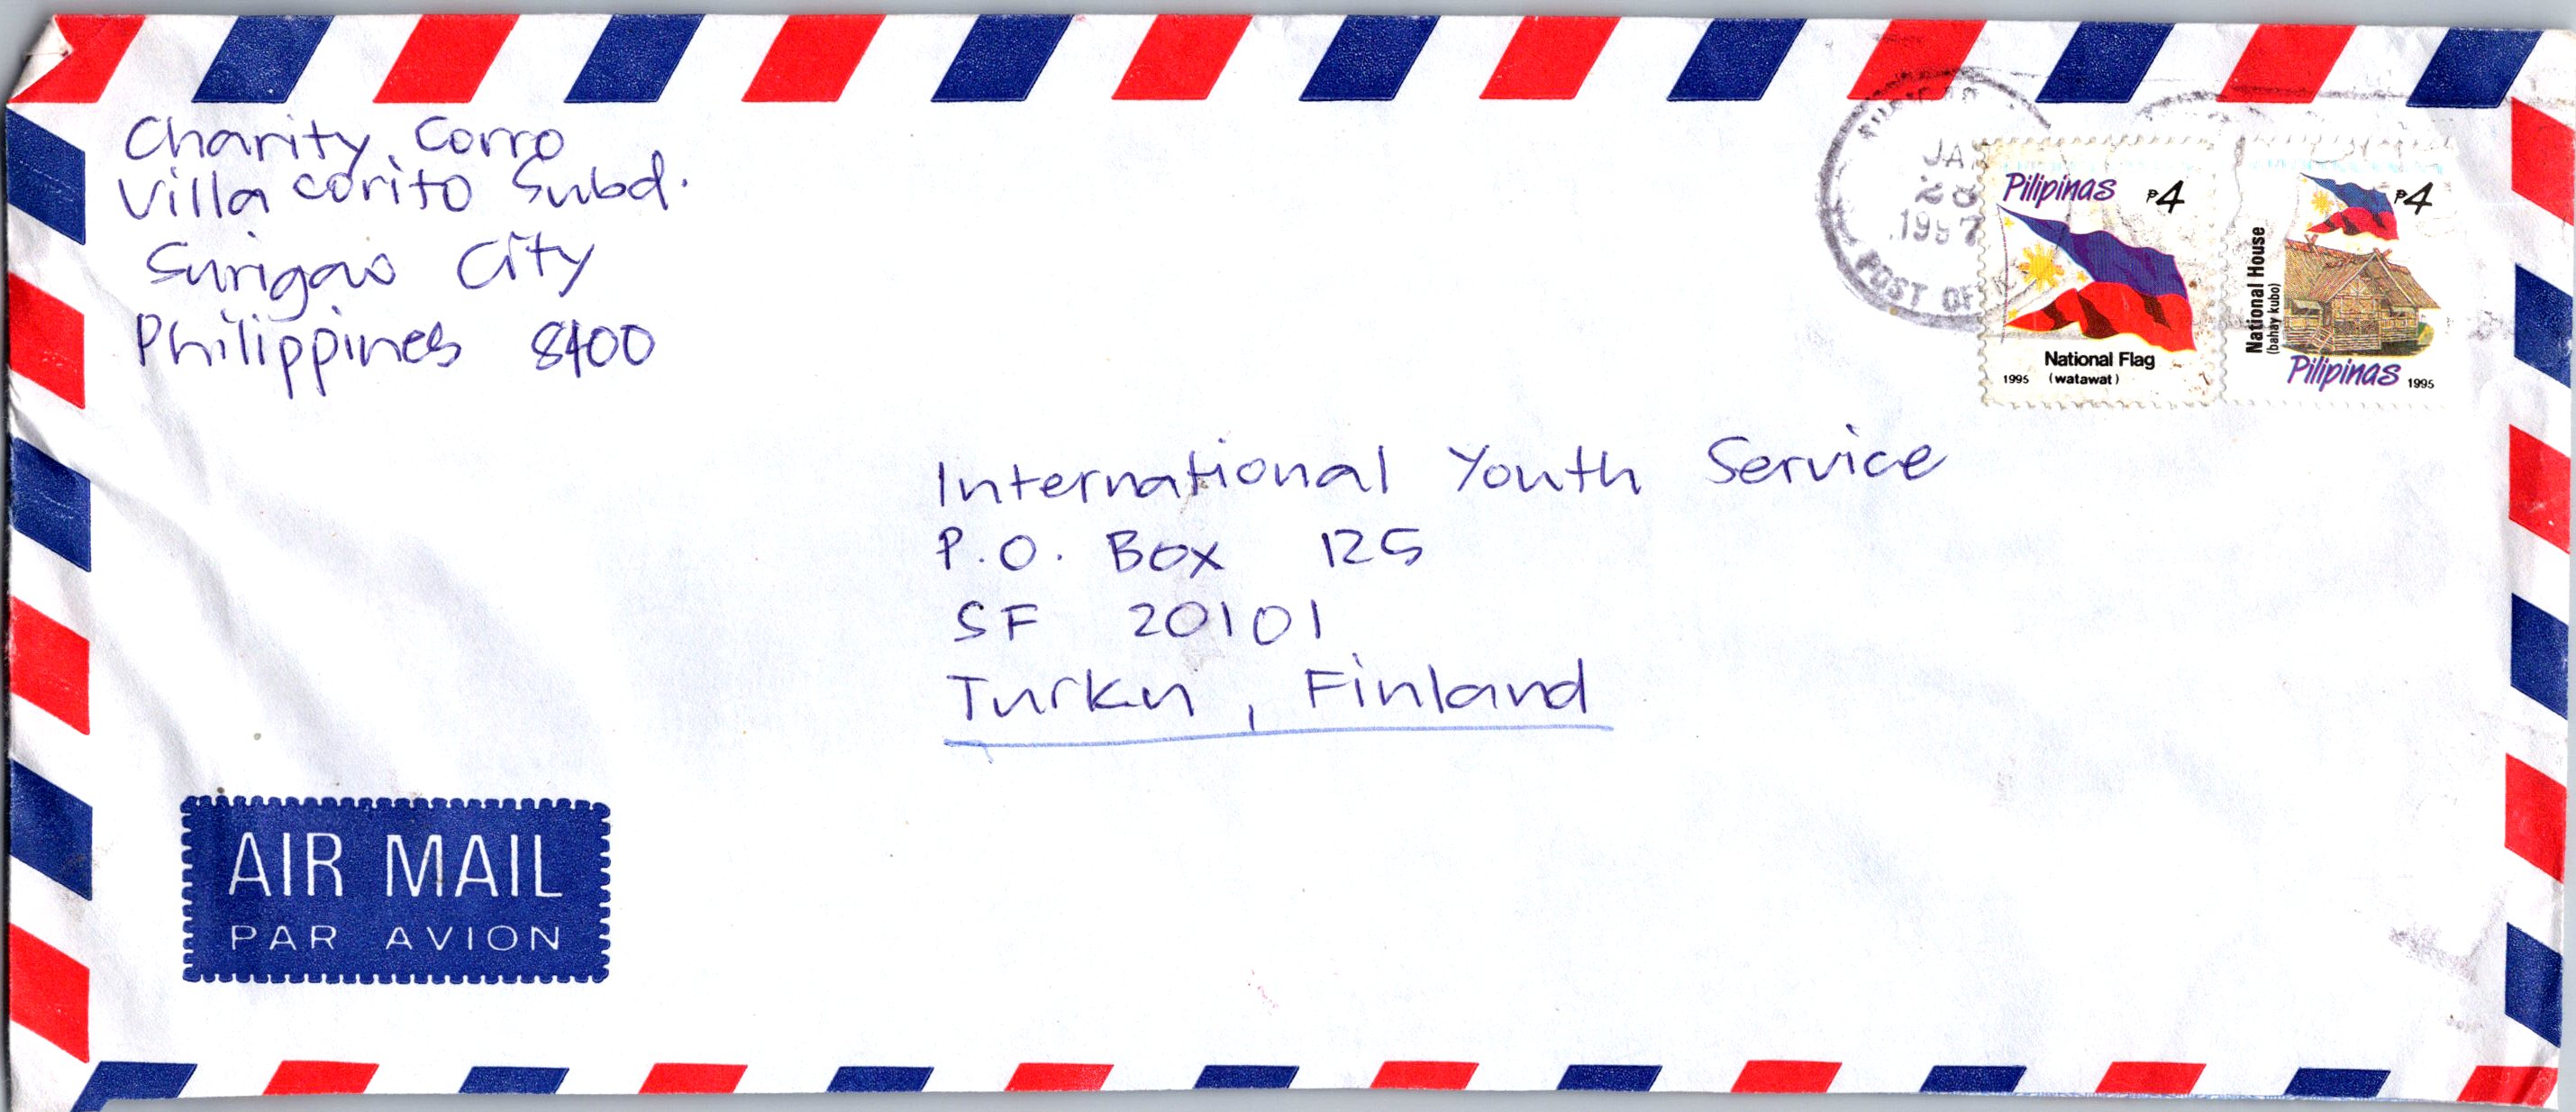 Charity Corro
Villa Corito Subd.
Surigao City
Philippines 8400
JA
1997
POST OFFIC
Pilipinas ₱4
National Flag
1995 (watawat)
₱4
National House
(bahay kubo)
Pilipinas 1995
International Youth Service
P.O. Box 125
SF 20101
Turku, Finland
AIR MAIL
PAR AVION